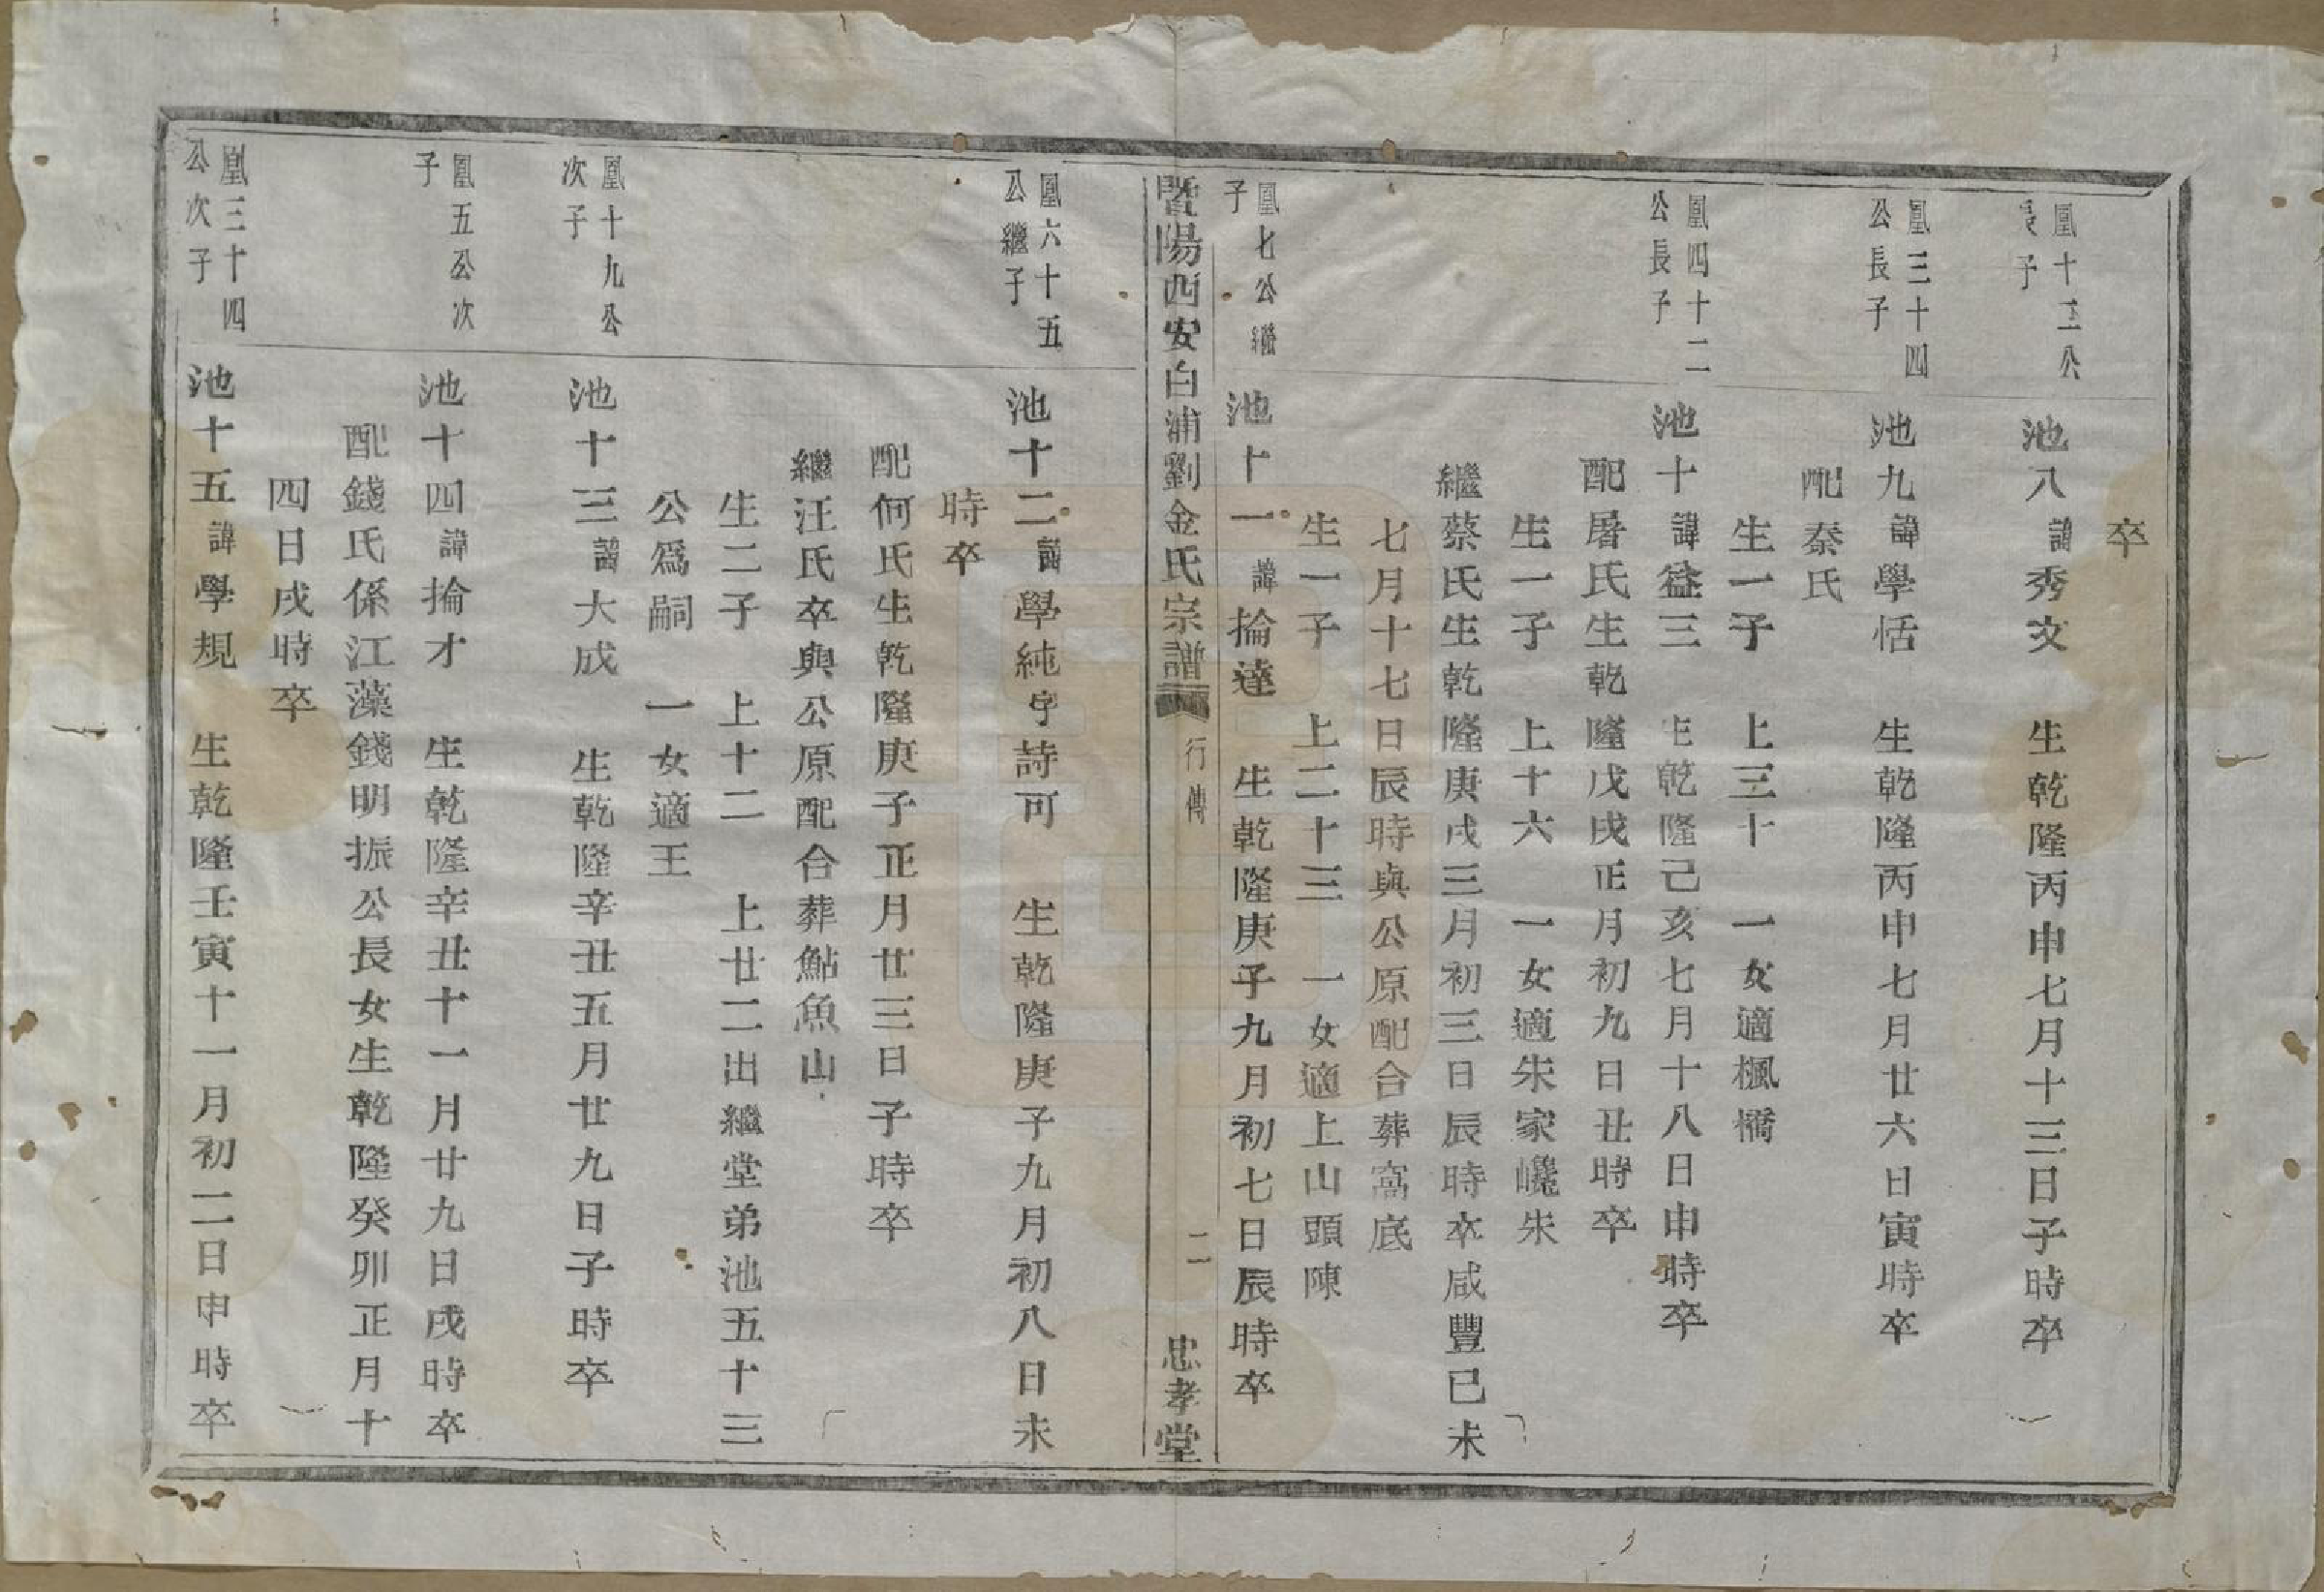 卒
凰十三公
長子
池八諱秀文　生乾隆丙申七月十三日子時卒
凰三十四
公長子
池九諱學恬　生乾隆丙申七月廿六日寅時卒
配秦氏
生一子　上三十　一女適楓橋
凰四十二
公長子
池十諱益三　生乾隆己亥七月十八日申時卒
配屠氏生乾隆戊戌正月初九日丑時卒
生一子　上十六　一女適朱家巉朱
繼蔡氏生乾隆庚戌三月初三日辰時卒咸豐已未
七月十七日辰時與公原配合葬窩底
生一子　上二十三　一女適上山頭陳
凰七公繼
子
池十一諱掄達　生乾隆庚子九月初七日辰時卒
暨陽西安白浦劉金氏宗譜　行傳　二　忠孝堂
凰六十五
公繼子
池十二諱學純字詩可　生乾隆庚子九月初八日未
時卒
配何氏生乾隆庚子正月廿三日子時卒
繼汪氏卒與公原配合葬鮎魚山
生二子　上十二　上廿二出繼堂弟池五十三
公爲嗣　一女適王
凰十九公
次子
池十三諱大成　生乾隆辛丑五月廿九日子時卒
凰五公次
子
池十四諱掄才　生乾隆辛丑十一月廿九日戌時卒
配錢氏係江藻錢明振公長女生乾隆癸卯正月十
四日戌時卒
凰三十四
公次子
池十五諱學規　生乾隆壬寅十一月初二日申時卒